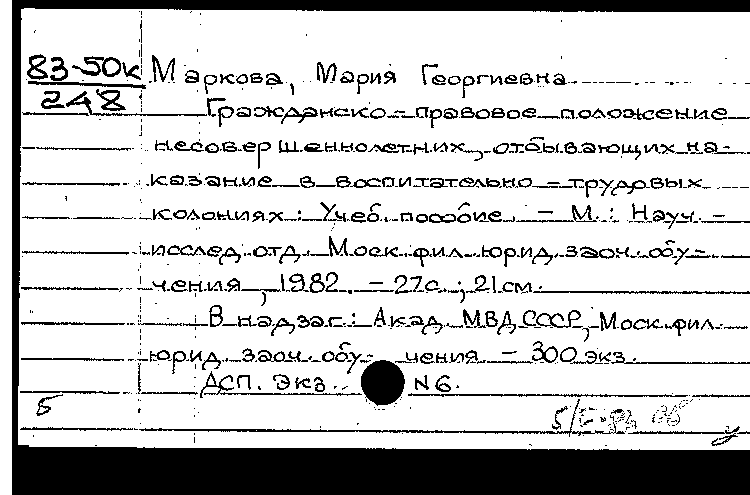 83-50к Маркова, Мария Георгиевна
248
Гражданско-правовое положение
несовершеннолетних, отбывающих на-
казание в воспитательно-трудовых
колониях: Учеб. пособие. - М.: Науч.-
исслед. отд. Моск. фил. юрид. заоч. обу-
чения, 1982. - 27с.; 21 см.
В надзаг.: Акад. МВД СССР, Моск. фил.
юрид. заоч. обучения. - 300 экз.
ДСП. Экз. N6.
Б
у